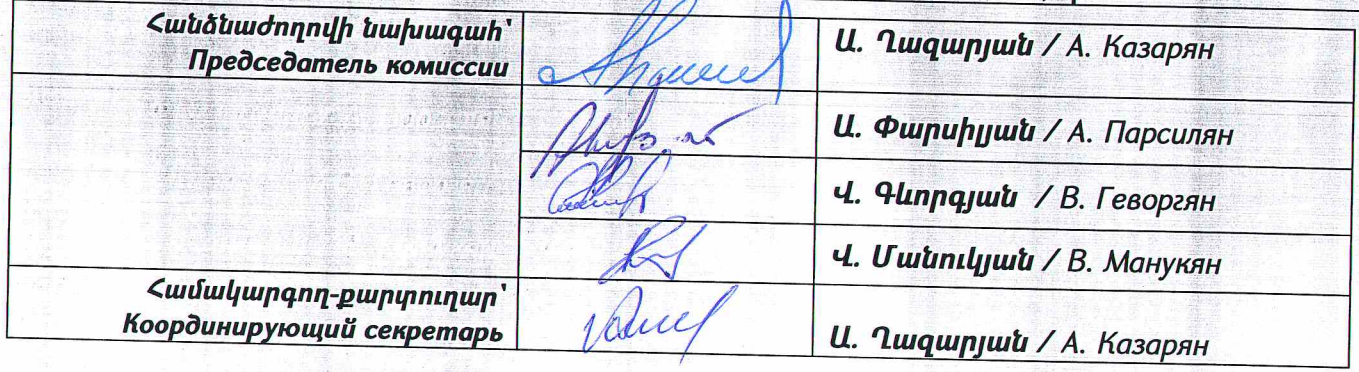 Հանձնաժողովի նախագահ՝
Председатель комиссии
Ա. Ղազարյան / А. Казарян
Ա. Փարսիլյան / А. Парсилян
Վ. Գևորգյան / В. Геворгян
Վ. Մանուկյան / В. Манукян
Համակարգող-քարտուղար՝
Координирующий секретарь
Ա. Ղազարյան / А. Казарян